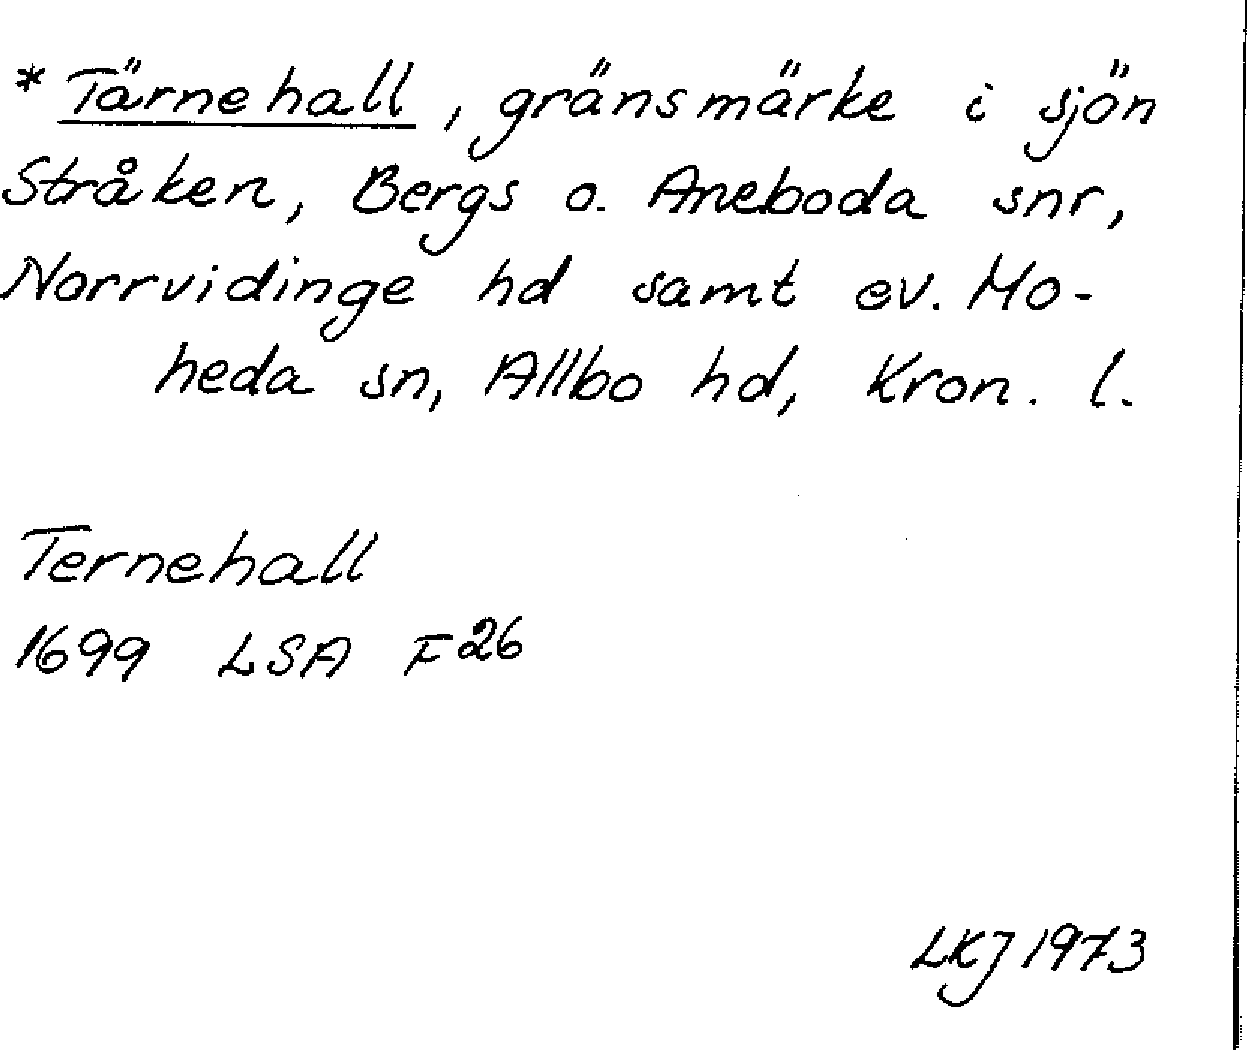 * Tärnehall, gränsmärke i sjön
Stråken, Bergs o. Aneboda snr,
Norrvidinge hd samt ev. Mo-
heda sn, Allbo hd, Kron. l.
Ternehall
1699 LSA F26
LKJ 1973